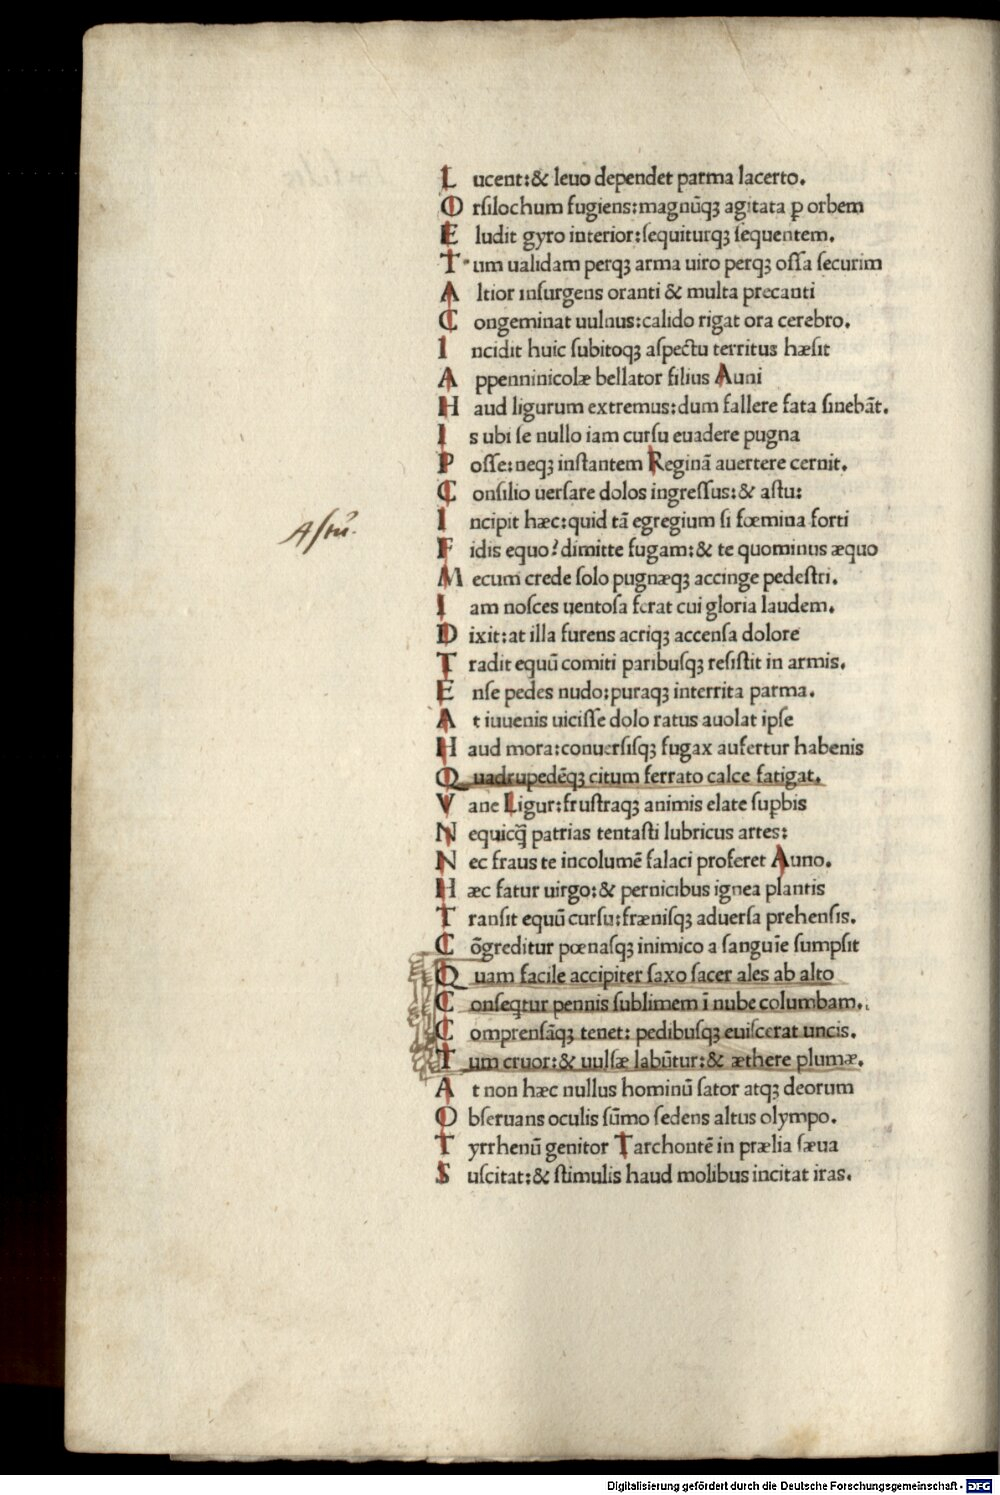 L ucent:& leuo dependet parma lacerto.
O rſilochum fugiens:magnūqꝫ agitata ꝑ orbem
E ludit gyro interior:ſequiturqꝫ ſequentem.
T um ualidam perqꝫ arma uiro perqꝫ oſſa ſecurim
A ltior inſurgens oranti & multa precanti
C ongeminat uulnus:calido rigat ora cerebro.
I ncidit huic ſubitoqꝫ aſpectu territus hæſit
A ppenninicolæ bellator filius Auni
H aud ligurum extremus:dum fallere fata ſinebāt.
I s ubi ſe nullo iam curſu euadere pugna
P oſſe:neqꝫ inſtantem Reginā auertere cernit.
C onſilio uerſare dolos ingreſſus:& aſtu:
Aſtu.
I ncipit hæc:quid tā egregium ſi fœmina forti
F idis equo? dimitte fugam:& te quominus æquo
M ecum crede ſolo pugnæqꝫ accinge pedeſtri.
I am noſces uentoſa ferat cui gloria laudem.
D ixit:at illa furens acriqꝫ accenſa dolore
T radit equū comiti paribuſqꝫ reſiſtit in armis.
E nſe pedes nudo:puraqꝫ interrita parma.
A t iuuenis uiciſſe dolo ratus auolat ipſe
H aud mora:conuerſiſqꝫ fugax aufertur habenis
Q uadrupedēqꝫ citum ferrato calce fatigat.
V ane Ligur:fruſtraqꝫ animis elate ſuꝑbis
N equicq̄ patrias tentaſti lubricus artes:
N ec fraus te incolumē falaci proferet Auno.
H æc fatur uirgo:& pernicibus ignea plantis
T ranſit equū curſu:fræniſqꝫ aduerſa prehenſis.
C ōgreditur pœnaſqꝫ inimico a ſanguīe ſumpſit
Q uam facile accipiter ſaxo ſacer ales ab alto
C onſeqtur pennis ſublimem ī nube columbam.
C omprenſāqꝫ tenet: pedibuſqꝫ euiſcerat uncis.
T um cruor:& uulſæ labūtur:& æthere plumæ.
A t non hæc nullus hominū ſator atqꝫ deorum
O bſeruans oculis ſūmo ſedens altus olympo.
T yrrhenū genitor Tarchontē in prælia ſæua
S uſcitat:& ſtimulis haud molibus incitat iras.
Digitalisierung gefördert durch die Deutsche Forschungsgemeinschaft - DFG